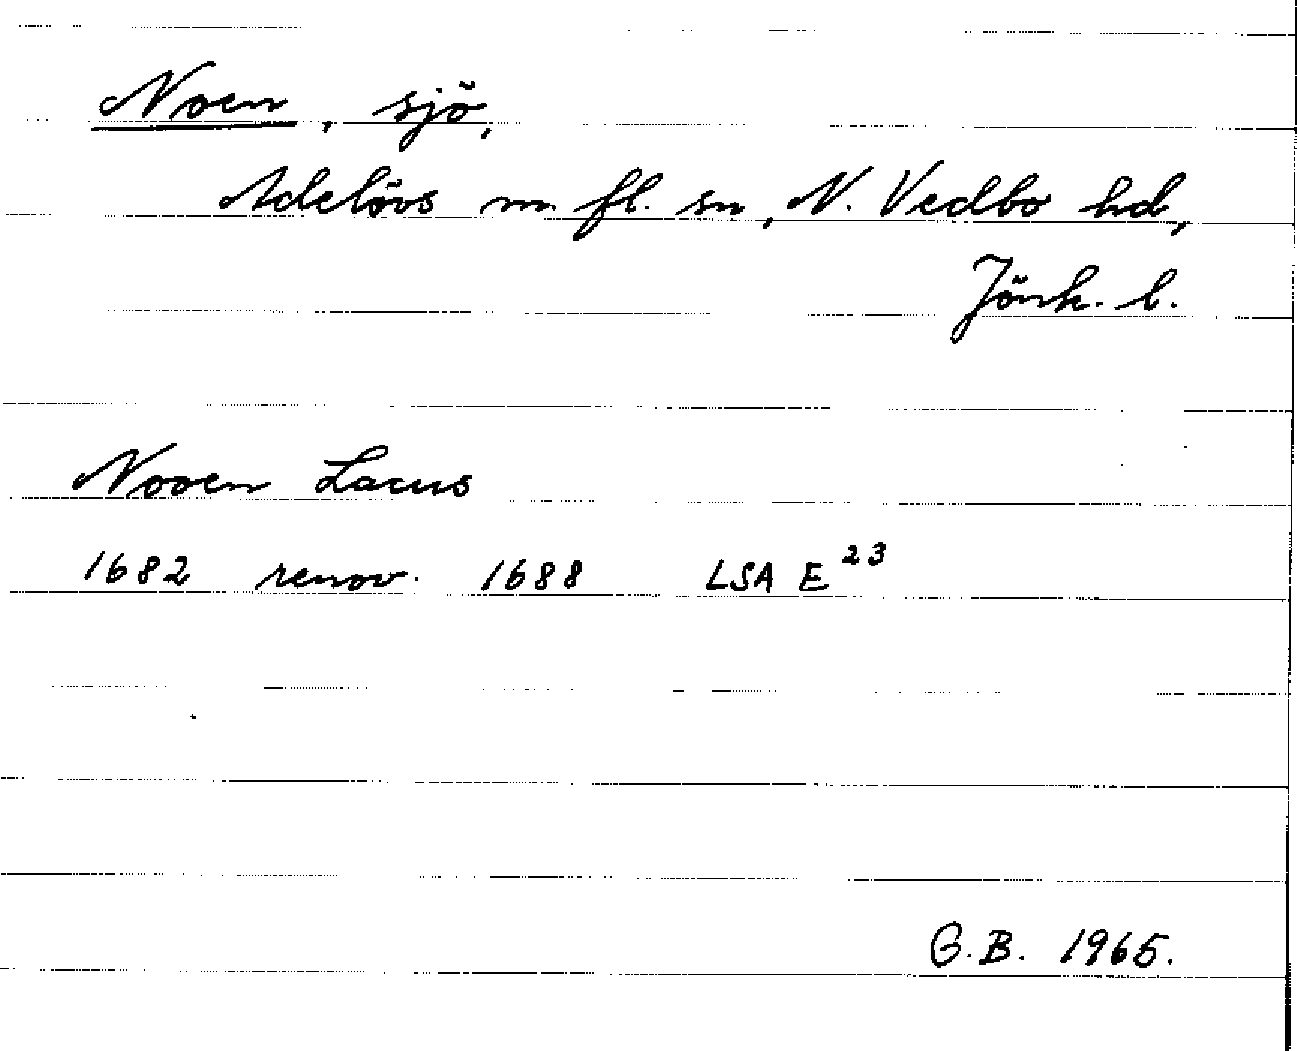 Noen, sjö,
Adelövs m. fl. sn, N. Vedbo hd,
Jönk. l.
Nooen Lacus
1682 renov. 1688 LSA E²³
G.B. 1965.